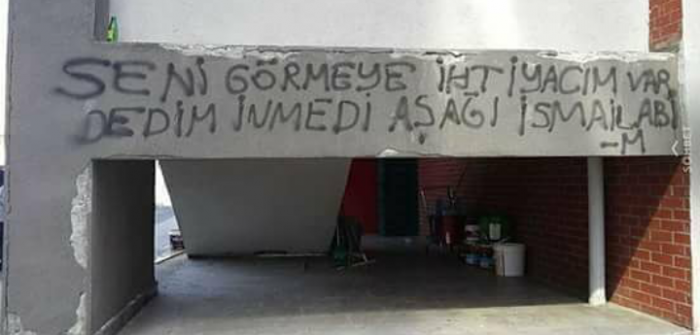 SENİ GÖRMEYE İHTİYACIM VAR
DEDİM İNMEDİ AŞAĞI İSMAİLABİ
-M